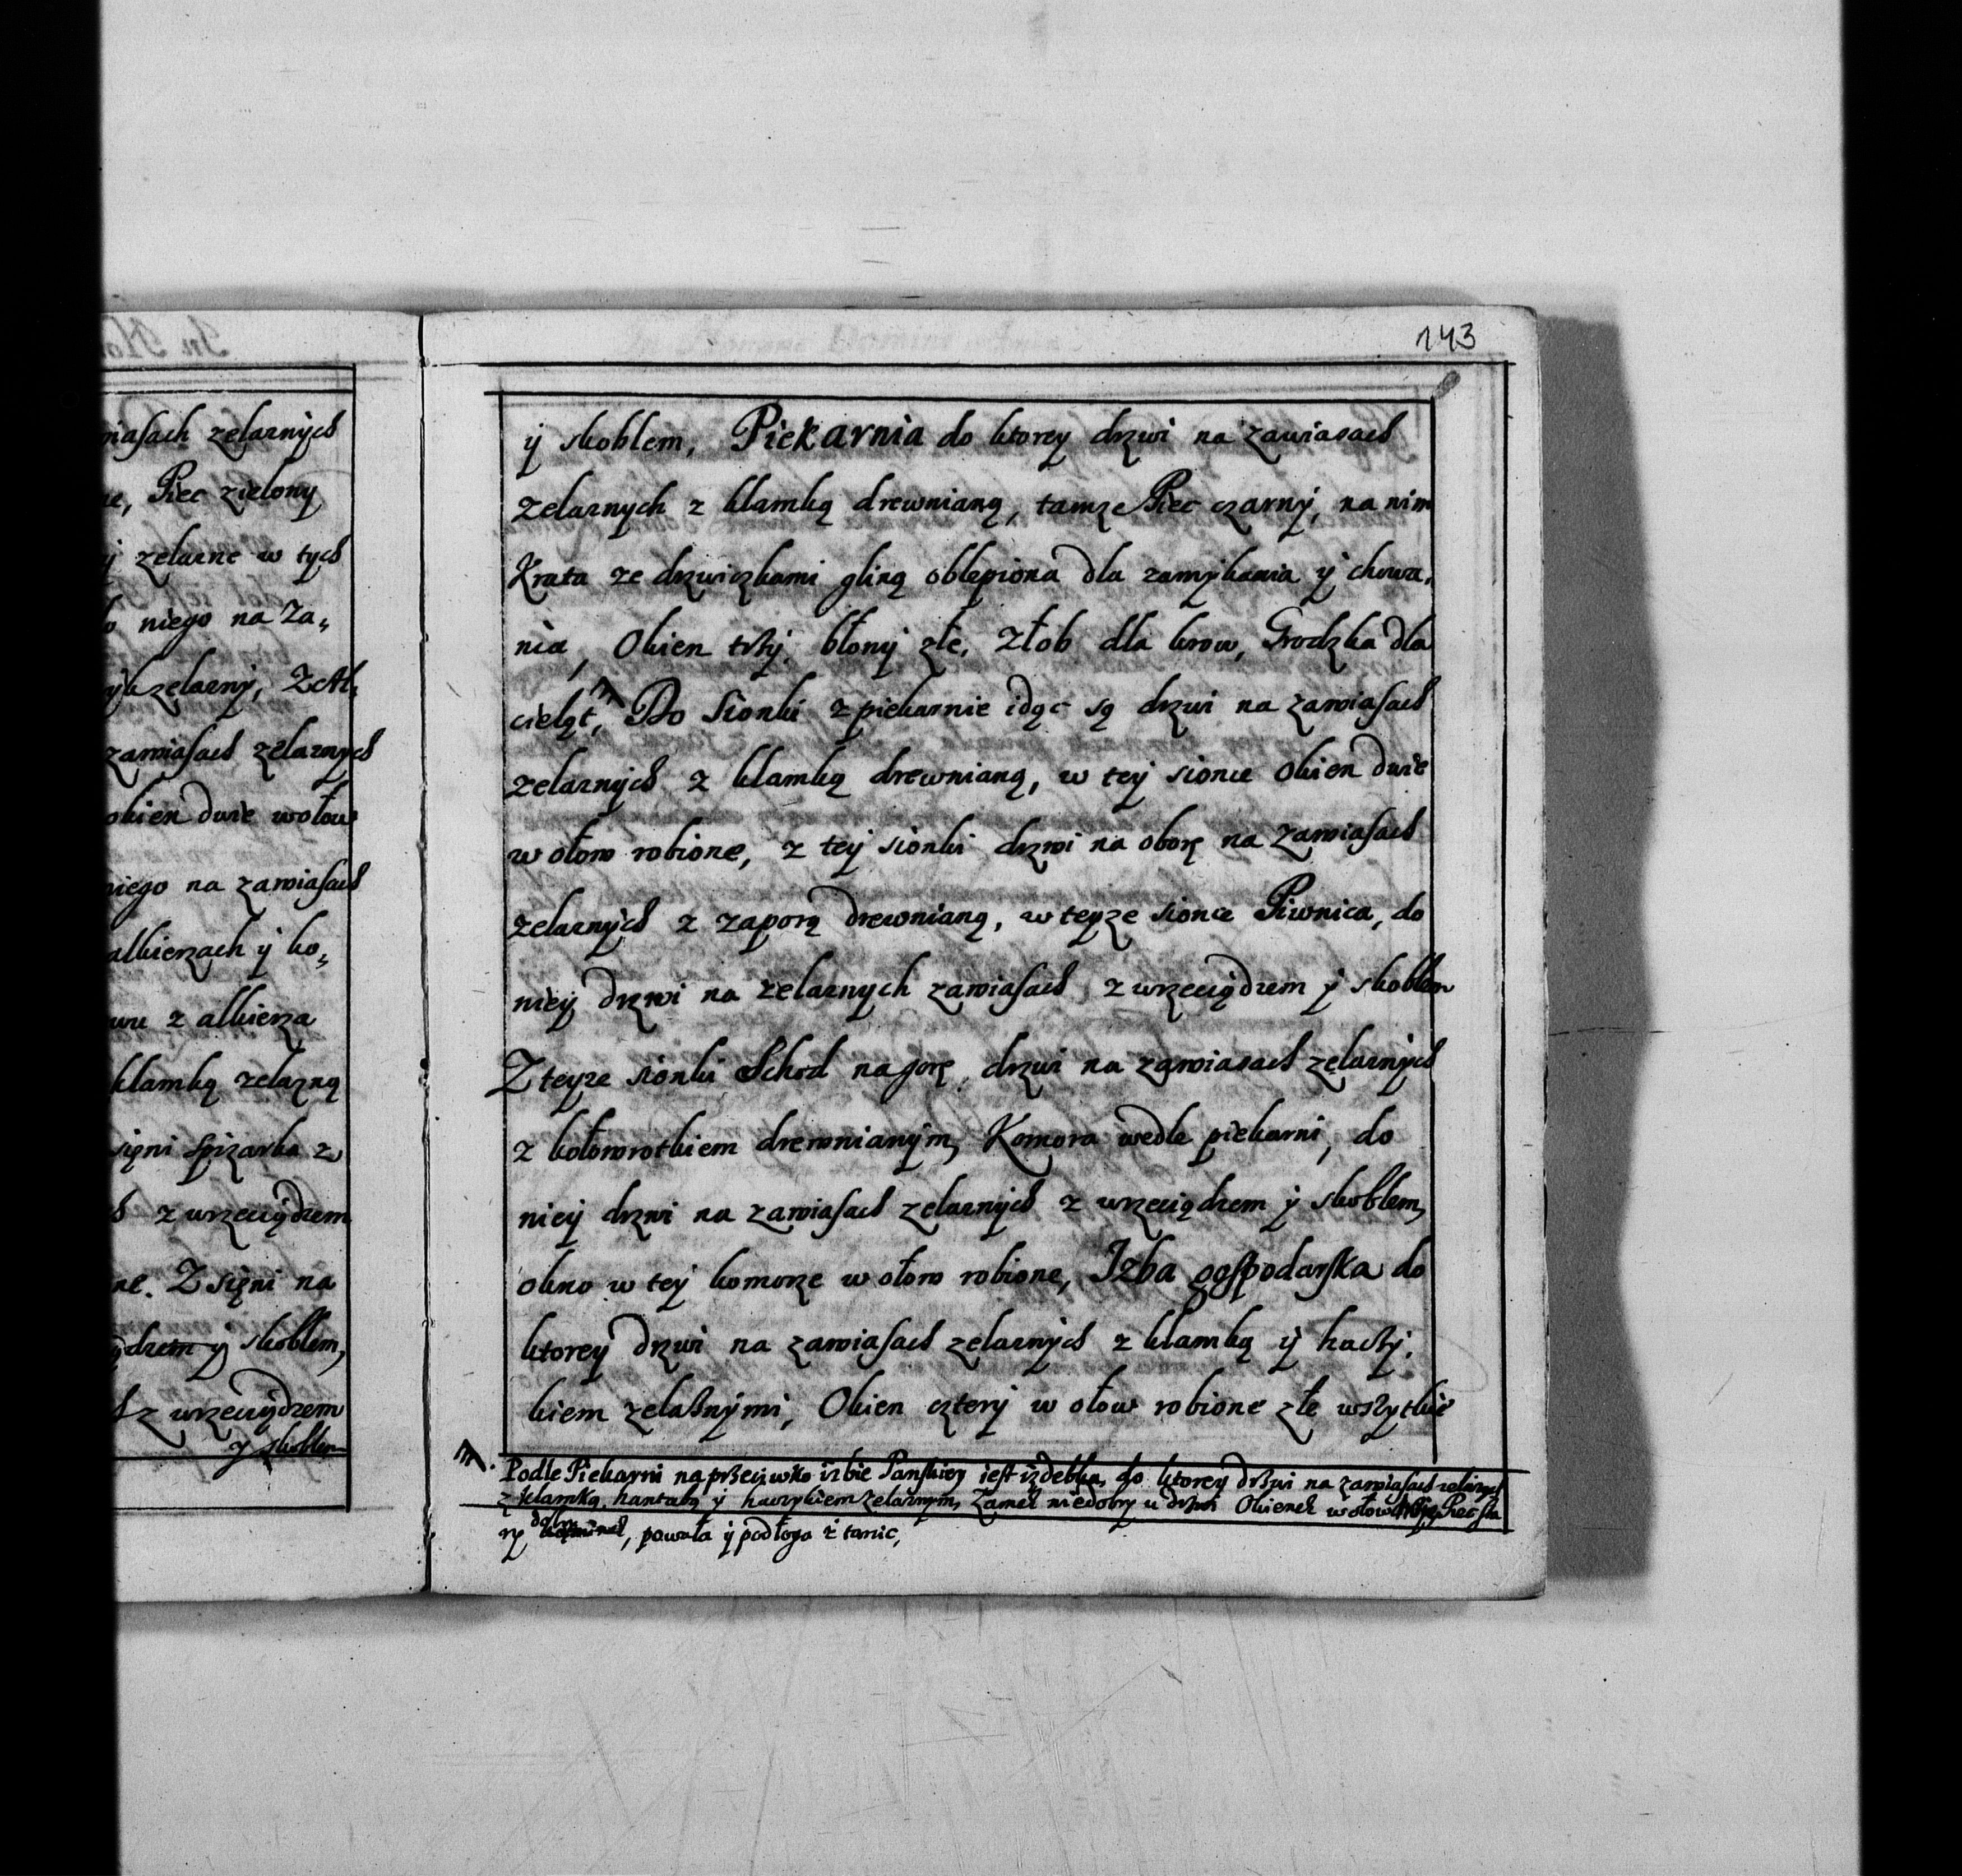 143
niasach zelaznych
ne, Piec zielony
y zelazne w tych
do niego na Za„
zelazny, Z
zawiasach zelaznych
okien dwie w ołow
niego na zawiasach
alkierzach y ko„
z alkierza
klamką zelazną
sięni spizarka z
z wrzeciądzem
ne. Z sięni na
ądzem y skoblem,
z wrzeciądzem
y skoblem
ÿ skoblem, Piekarnia do ktorey drzwi na zawiasach
zelaznych z klamką drewnianą, tamze Piec czarny, na nim
Krata ze drzwiczkami gliną oblepiona dla zamykania ÿ chowa„
nia, Okien trzy, błony złe, Złob dla krow, Grodzka dla
cieląt, Do Sionki z piekarnie idąc są drzwi na zawiasach
zelaznych z klamką drewnianą, w tey sionce Okien dwie
w ołow robione, z tey sionki drzwi na oborę na zawiasach
zelaznych z zaporą drewnianą, w teyze sionce Piwnica, do
niey drzwi na zelaznych zawiasach z wrzeciądzem ÿ skoblem
Z teyze sionki Schod na gorę, drzwi na zawiasach zelaznych
z kołowrotkiem drewnianym, Komora wedle piekarni, do
niey drzwi na zawiasach zelaznych z wrzeciądzem ÿ skoblem,
okno w tey komorze w ołow robione, Izba gospodarska do
ktorey drzwi na zawiasach zelaznych z klamką ÿ haczy„
kiem zelaznymi, Okien cztery w ołow robione złe wszytkie
Podle Piekarni naprzeciwko izbie Panskiey iest izdebka, do ktorey drzwi na zawiasach zelaznych
z klamką, hantabą ÿ haczykiem zelaznym, Zamek niedobry u drzwi Okienek w ołow Piec sta
ry, powała ÿ podłoga z tarcic,